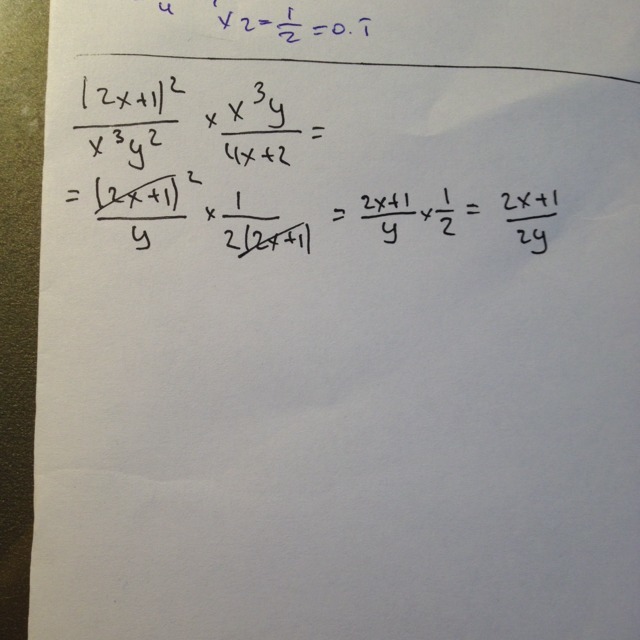 x2=1/2=0.5
(2x+1)²/x³y² × x³y/4x+2 =
= (2x+1)²/y × 1/2(2x+1) = 2x+1/y × 1/2 = 2x+1/2y